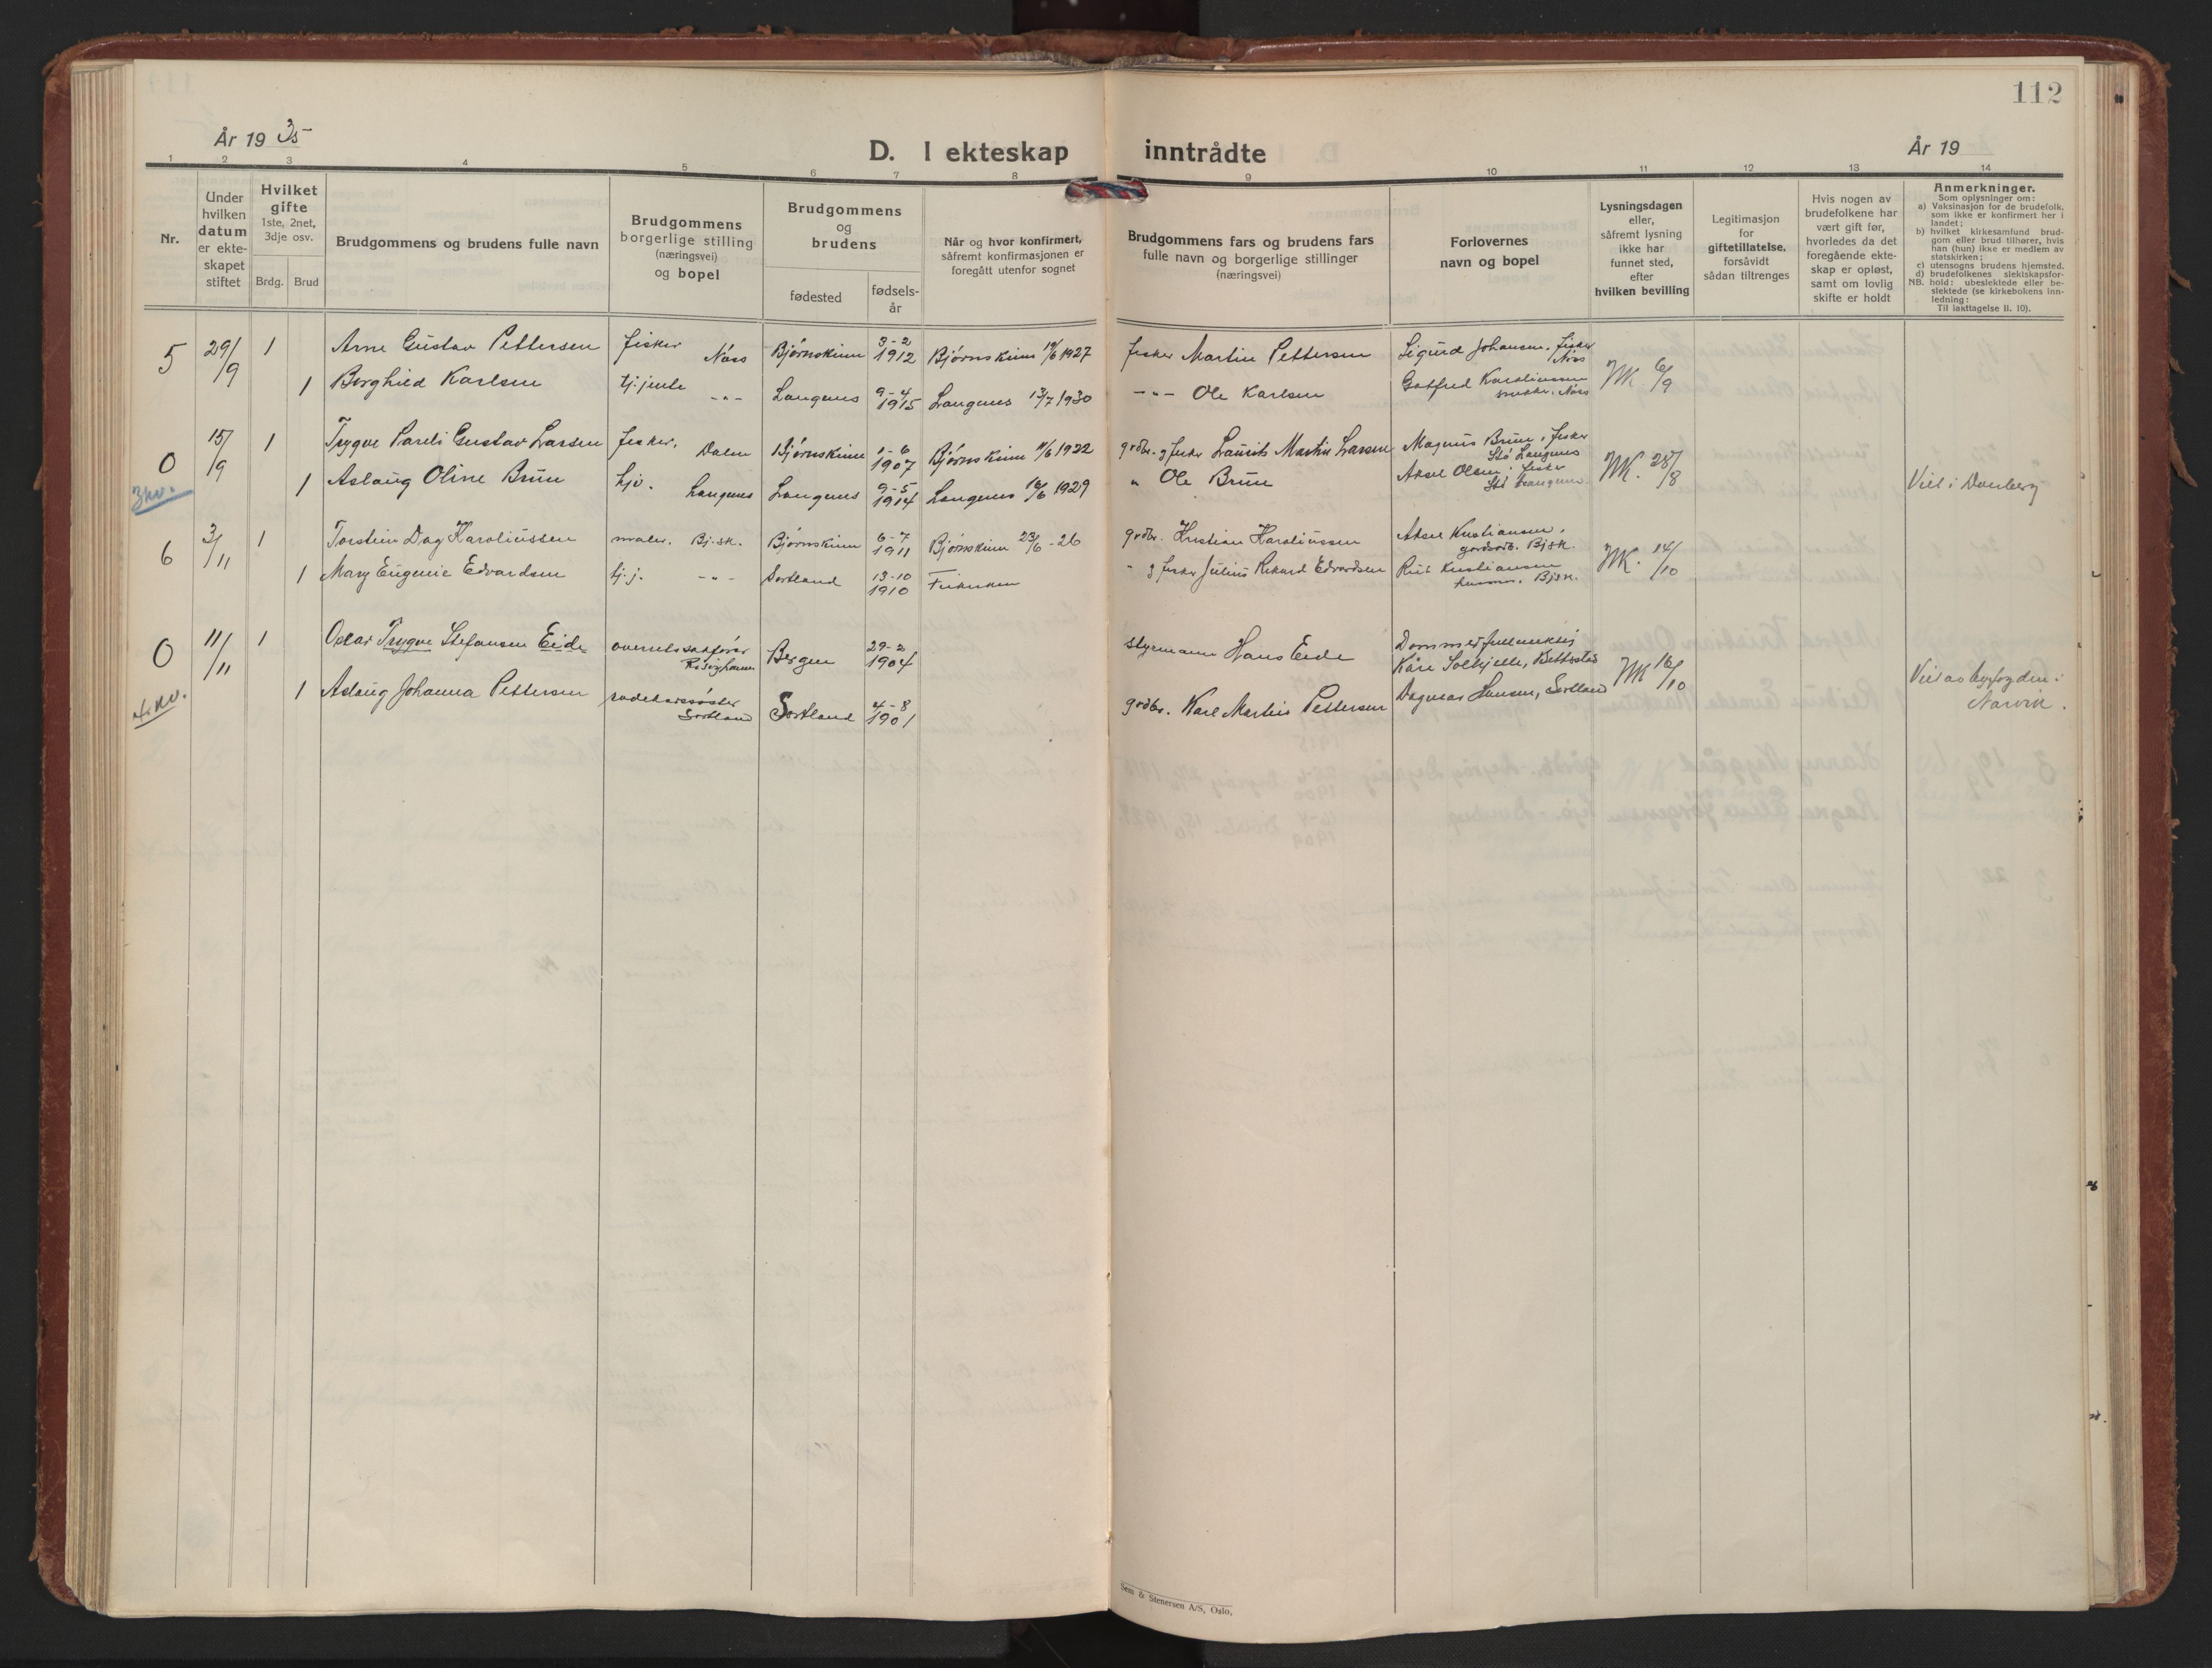 112
År 19 35
D. I ekteskap inntrådte
År 19
1 2 3 4 5 6 7 8 9 10 11 12 13 14
Nr.
Under
hvilken
datum
er ekte-
skapet
stiftet
Hvilket
gifte
1ste, 2net,
3dje osv.
Brdg. Brud
Brudgommens og brudens fulle navn
Brudgommens
borgerlige stilling
(næringsvei)
og bopel
Brudgommens
og
brudens
fødested
fødsels-
år
Når og hvor konfirmert,
såfremt konfirmasjonen er
foregått utenfor sognet
Brudgommens fars og brudens fars
fulle navn og borgerlige stillinger
(næringsvei)
Forlovernes
navn og bopel
Lysningsdagen
eller,
såfremt lysning
ikke har
funnet sted,
efter
hvilken bevilling
Legitimasjon
for
giftetillatelse,
forsåvidt
sådan tiltrenges
Hvis nogen av
brudefolkene har
vært gift før,
hvorledes da det
foregående ekte-
skap er opløst,
samt om lovlig
skifte er holdt
Anmerkninger.
Som oplysninger om:
a) Vaksinasjon for de brudefolk,
som ikke er konfirmert her i
landet;
b) hvilket kirkesamfund brud-
gom eller brud tilhører, hvis
han (hun) ikke er medlem av
statskirken;
c) utensogns brudens hjemsted.
d) brudefolkenes slektskapsfor-
NB. hold: ubeslektede eller be-
slektede (se kirkebokens inn-
ledning:
Til iakttagelse II. 10).
5 29/9 1 Arne Gustav Pettersen fisker Nøss Bjørnskinn 3-2 1912 Bjørnskinn 19/6 1927 fisker Martin Pettersen Sigurd Johansen, fisker Nøss
1 Borghild Karlsen tj.jente -"- Langenes 9-4 1915 Langenes 13/7 1930 -"- Ole Karlsen Gotfred Karoliussen snekker, Nøss NK 6/9
0 15/9 1 Trygve Pareli Gustav Larsen fisker, Dalen Bjørnskinn 1-6 1907 Bjørnskinn 11/6 1922 grdbr. & fisker Laurits Martin Larsen Magnus Brun, fisker Stø Langenes
3 kv. 1 Aslaug Oline Brun hjv. Langenes Langenes 9-5 1914 Langenes 16/6 1929 " Ole Brun Aksel Olsen, fisker Stø Langenes NK. 28/8 Viet i Dverberg
6 3/11 1 Torstein Dag Haroliussen maler. Bj.sk. Bjørnskinn 6-7 1911 Bjørnskinn 23/6-26 grdbr. Kristian Haroliussen Aksel Kristiansen, gardsarb. Bjsk.
1 Mary Eugenie Edvardsen tj.j. -"- Sortland 13-10 1910 Frikirken " & fisker Julius Rikard Edvardsen Rut Kristiansen husm. Bjsk. NK. 14/10
0 11/11 1 Oskar Trygve Stefansen Eide overrettssakfører Risøyhamn Bergen 29-2 1904 styrmann Hans Eide Dommerfullmektig Kåre Solhjelle,
4. kv. 1 Aslaug Johanna Pettersen Sortland Sortland 4-8 1901 grdbr. Karl Martin Pettersen Dagmar Hansen, Sortland NK 16/10 Viet av byfogden i Narvik.
Sem & Stenersen A/S, Oslo.